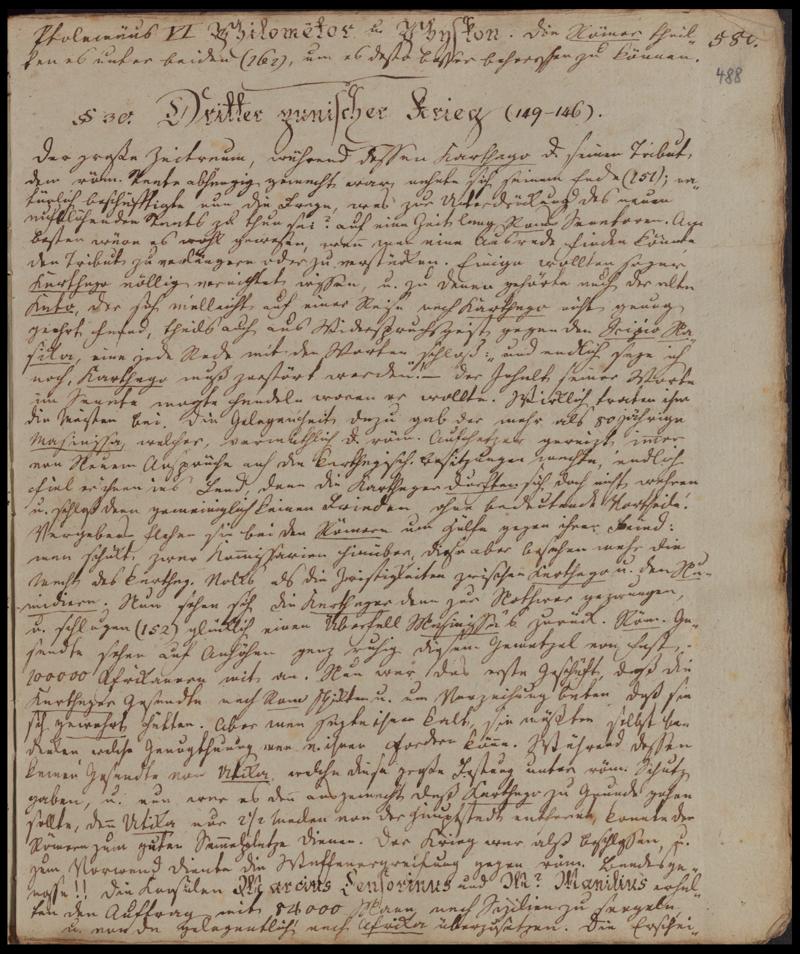 Ptolemäus VI Philometor u. Physkon. Die Römer theil- 581.
ten es unter beiden (162), um es desto besser beherrschen zu können.
488
§ 30. Dritter punischer Krieg (149–146).
Der große Zeitraum, während dessen Karthago d. seinen Tribut
dem röm. Staate abhängig gemacht war, nahte sich seinem Ende (151); na-
türlich beschäftigte nun die Frage, was zur Unterdrückung des neuen
aufblühenden Staats zu thun sei? auf eine Zeit lang Roms Senatoren. Am
besten wäre es wohl gewesen, wenn man eine Ausrede finden könnte
den Tribut zu verlängern oder zu verstärken. Einige wollten sogar
Karthago völlig vernichtet wissen, u. zu denen gehörte auch der alte
Kato, der sich vielleicht auf einer Reise nach Karthago nicht genug
geehrt fand, theils auch aus Widerspruchsgeist gegen den Scipio Na-
sika, eine jede Rede mit den Worten schloß: „und endlich sage ich
noch, Karthago muß zerstört werden.“ – der Inhalt seiner Worte
im Senate mogte handeln wovon er wollte. Wirklich traten ihm
die Meisten bei. Die Gelegenheit dazu gab der mehr als 80 jährige
Masinissa, welcher, vermuthlich d. röm. Aufhetzer gereizt, immer
von Neuem Ansprüche auf die karthagisch. Besitzungen machte, endlich
fiel er ihnen ins Land, denn die Karthager durften sich doch nicht wehren
u. schloß dann gemeiniglich keinen Frieden, ohne bedeutende Vortheile.
Vergebens flehen sie bei den Römern um Hülfe gegen ihren Feind:
man schickt zwar Kommissarien hinüber, diese aber besehen mehr die
Macht des karthag. Volks als die Zwistigkeiten zwischen Karthago u. den Nu-
midiern. Nun sehen sich die Karthager denn zur Nothwer gezwungen,
u. schlugen (152) glücklich einen Überfall Masinissa's zurück. Röm. Ge-
sandte sehen auf Anhöhen ganz ruhig diesem Gemetzel von fast
100000 Afrikanern mit an. Nun war das erste Geschäft, daß die
Karthager Gesandte nach Rom schikten u. um Verzeihung baten, daß sie
sich gewehrt hätten. Aber man sagte ihnen kalt, sie müßten selbst
welche Genugthuung man v. ihnen fordern könne. Während dessen
kamen Gesandte von Utika, welche diese große Festung unter röm. Schutz
gaben, u. nun war es denn ausgemacht daß Karthago zu Grunde gehen
sollte, denn Utika nur 2½ Meilen von der Hauptstadt entfernt, konnte den
Römern zum guten Sammelplatze dienen. Der Krieg war also beschlossen, u.
zum Vorwand diente die Waffenergreifung gegen röm. Bundesge-
nosse!! Die Konsulen Marcius Censorinus und M? Manilius erhiel-
ten den Auftrag mit 84000 Mann nach Sizilien zu segeln
u. von da gelegentlich nach Afrika überzusetzen. Die Erschei-